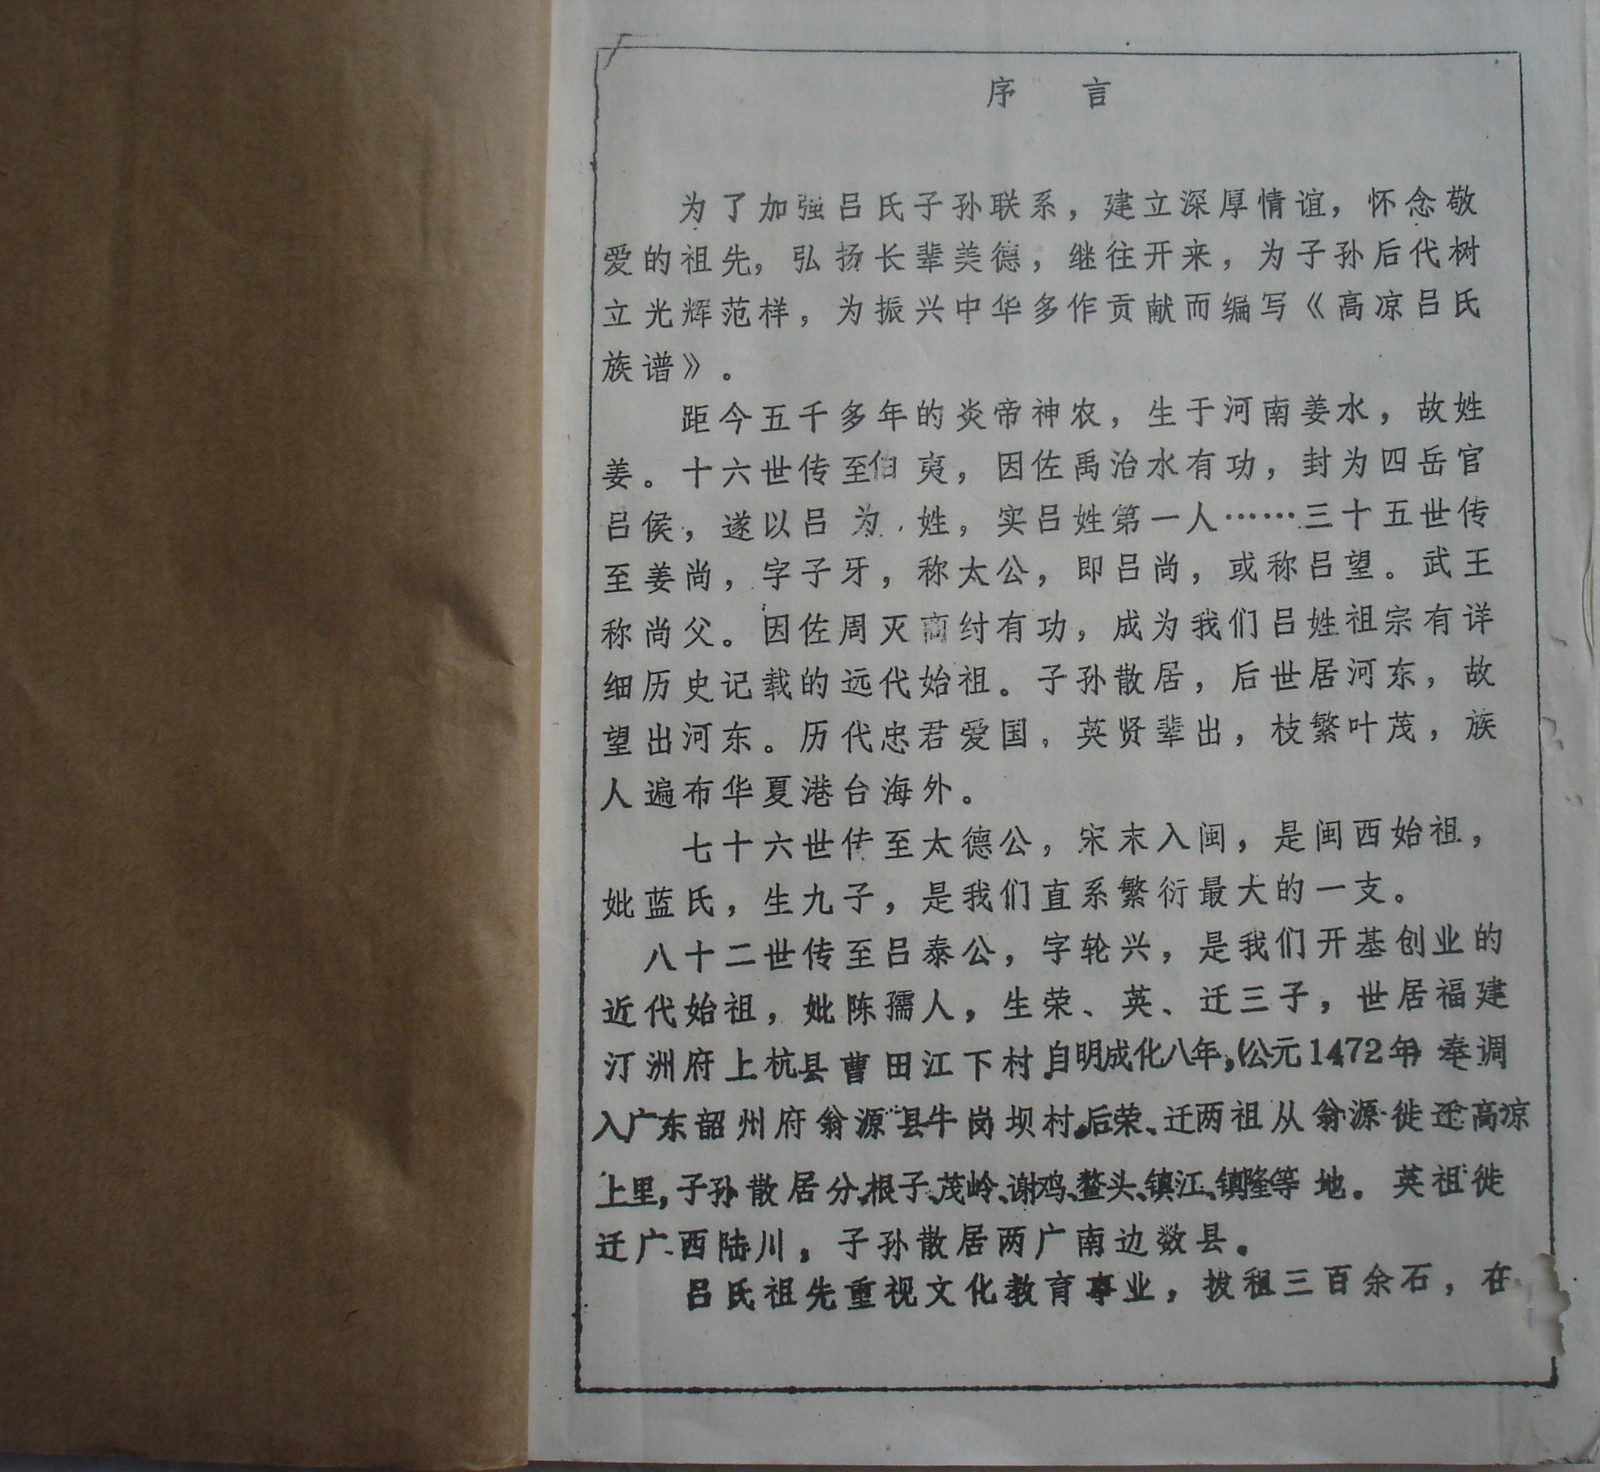 序 言
为了加强吕氏子孙联系，建立深厚情谊，怀念敬
爱的祖先，弘扬长辈美德，继往开来，为子孙后代树
立光辉范样，为振兴中华多作贡献而编写《高凉吕氏
族谱》。
距今五千多年的炎帝神农，生于河南姜水，故姓
姜。十六世传至伯夷，因佐禹治水有功，封为四岳官
吕侯，遂以吕为姓，实吕姓第一人……三十五世传
至姜尚，字子牙，称太公，即吕尚，或称吕望。武王
称尚父。因佐周灭商纣有功，成为我们吕姓祖宗有详
细历史记载的远代始祖。子孙散居，后世居河东，故
望出河东。历代忠君爱国，英贤辈出，枝繁叶茂，族
人遍布华夏港台海外。
七十六世传至太德公，宋末入闽，是闽西始祖，
妣蓝氏，生九子，是我们直系繁衍最大的一支。
八十二世传至吕泰公，字轮兴，是我们开基创业的
近代始祖，妣陈孺人，生荣、英、迁三子，世居福建
汀洲府上杭县曹田江下村.自明成化八年,(公元1472年)奉调
入广东韶州府翁源县牛岗坝村.后荣、迁两祖从翁源徙迁高凉
上里,子孙散居分.根子、茂岭、谢鸡、鳌头、镇江、镇隆等地。英祖徙
迁广西陆川，子孙散居两广南边数县。
吕氏祖先重视文化教育事业，拨租三百余石，在